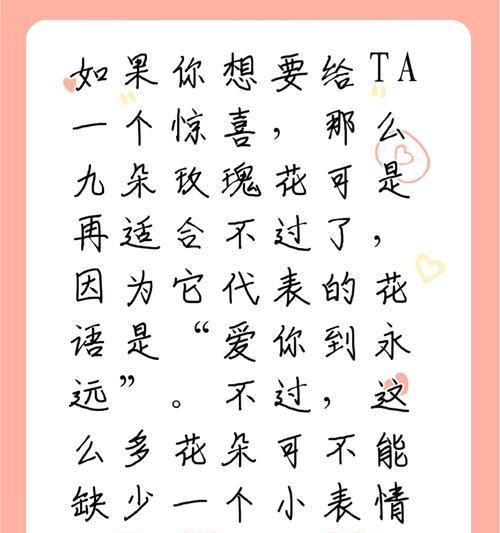 如果你想要给TA
一个惊喜，那么
九朵玫瑰花可是
再适合不过了，
因为它代表的花
语是“爱你到永
远”。不过，这
么多花朵可不能
缺少一个小表情